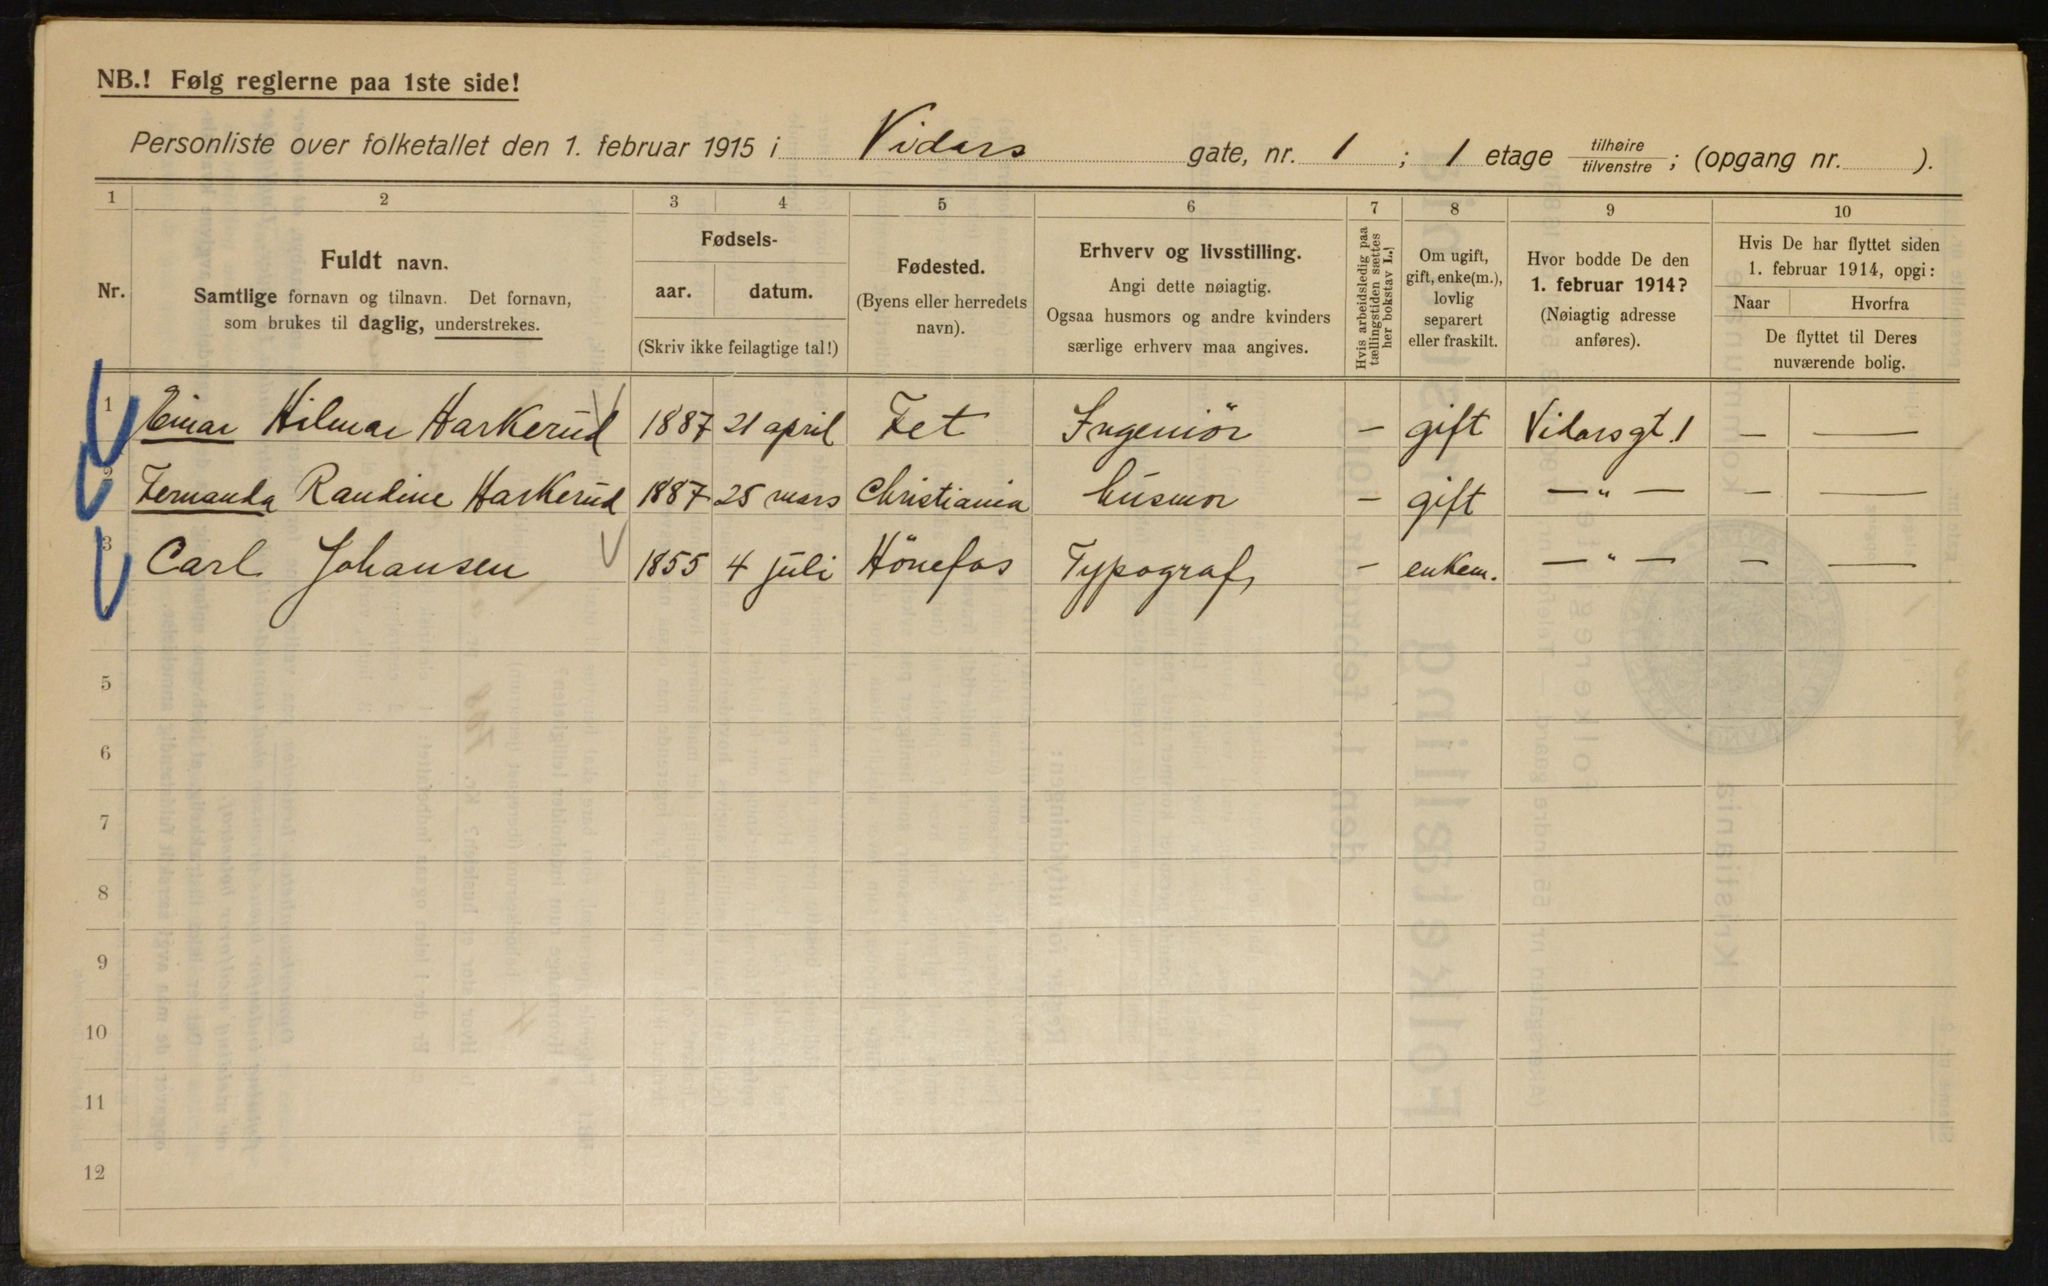 NB.! Følg reglerne paa 1ste side!
Personliste over folketallet den 1. februar 1915 i Vidars gate, nr. 1 ; 1 etage tilhøire/tilvenstre ; (opgang nr. ).
1 2 3 4 5 6 7 8 9 10
Nr.
Fuldt navn.
Samtlige fornavn og tilnavn. Det fornavn,
som brukes til daglig, understrekes.
Fødsels-
aar. datum.
(Skriv ikke feilagtige tal!)
Fødested.
(Byens eller herredets
navn).
Erhverv og livsstilling.
Angi dette nøiagtig.
Ogsaa husmors og andre kvinders
særlige erhverv maa angives.
Hvis arbeidsledig paa
tællingstiden sættes
her bokstav L.!
Om ugift,
gift, enke(m.),
lovlig
separert
eller fraskilt.
Hvor bodde De den
1. februar 1914?
(Nøiagtig adresse
anføres).
Hvis De har flyttet siden
1. februar 1914, opgi:
Naar Hvorfra
De flyttet til Deres
nuværende bolig.
1 Einar Hilmar Harkerud 1887 21 april Fet Ingeniör — gift Vidarsgt. 1 — —
2 Fernanda Randine Harkerud 1887 25 mars Christiania husmor — gift — " — — —
3 Carl Johansen 1855 4 juli Hönefos Typograf, — enkem. — " — — —
5
6
7
8
9
10
11
12